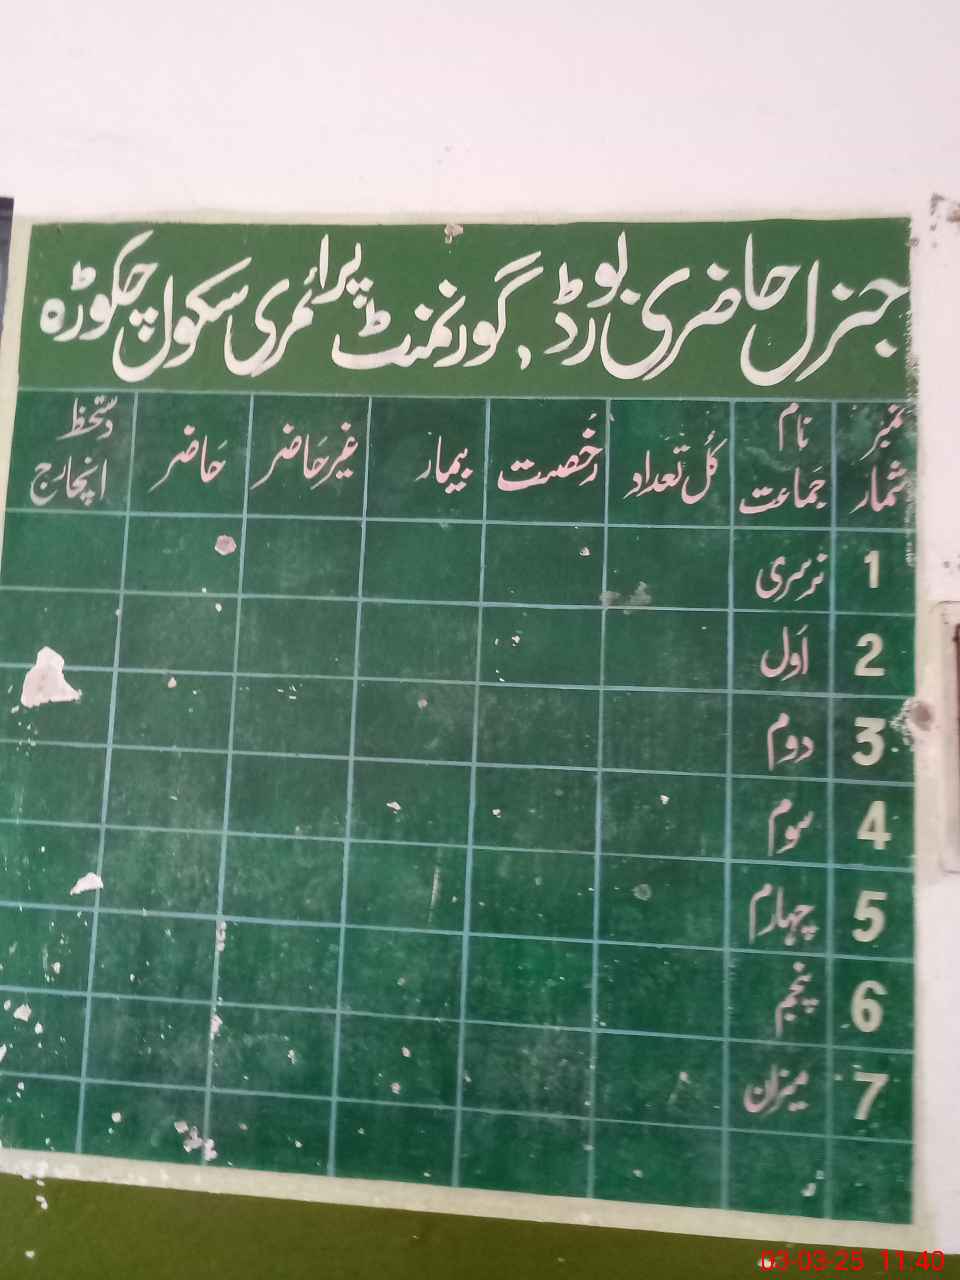 جنرل حاضری بورڈ، گورنمنٹ پرائمری سکول چکوڑہ
نمبر شمار نام جماعت کُل تعداد رُخصت بیمار غیر حَاضر حَاضر دستخط انچارج
1 نرسری
2 اَول
3 دوم
4 سوم
5 چہارم
6 پنجم
7 میزان
03-03-25 11:40